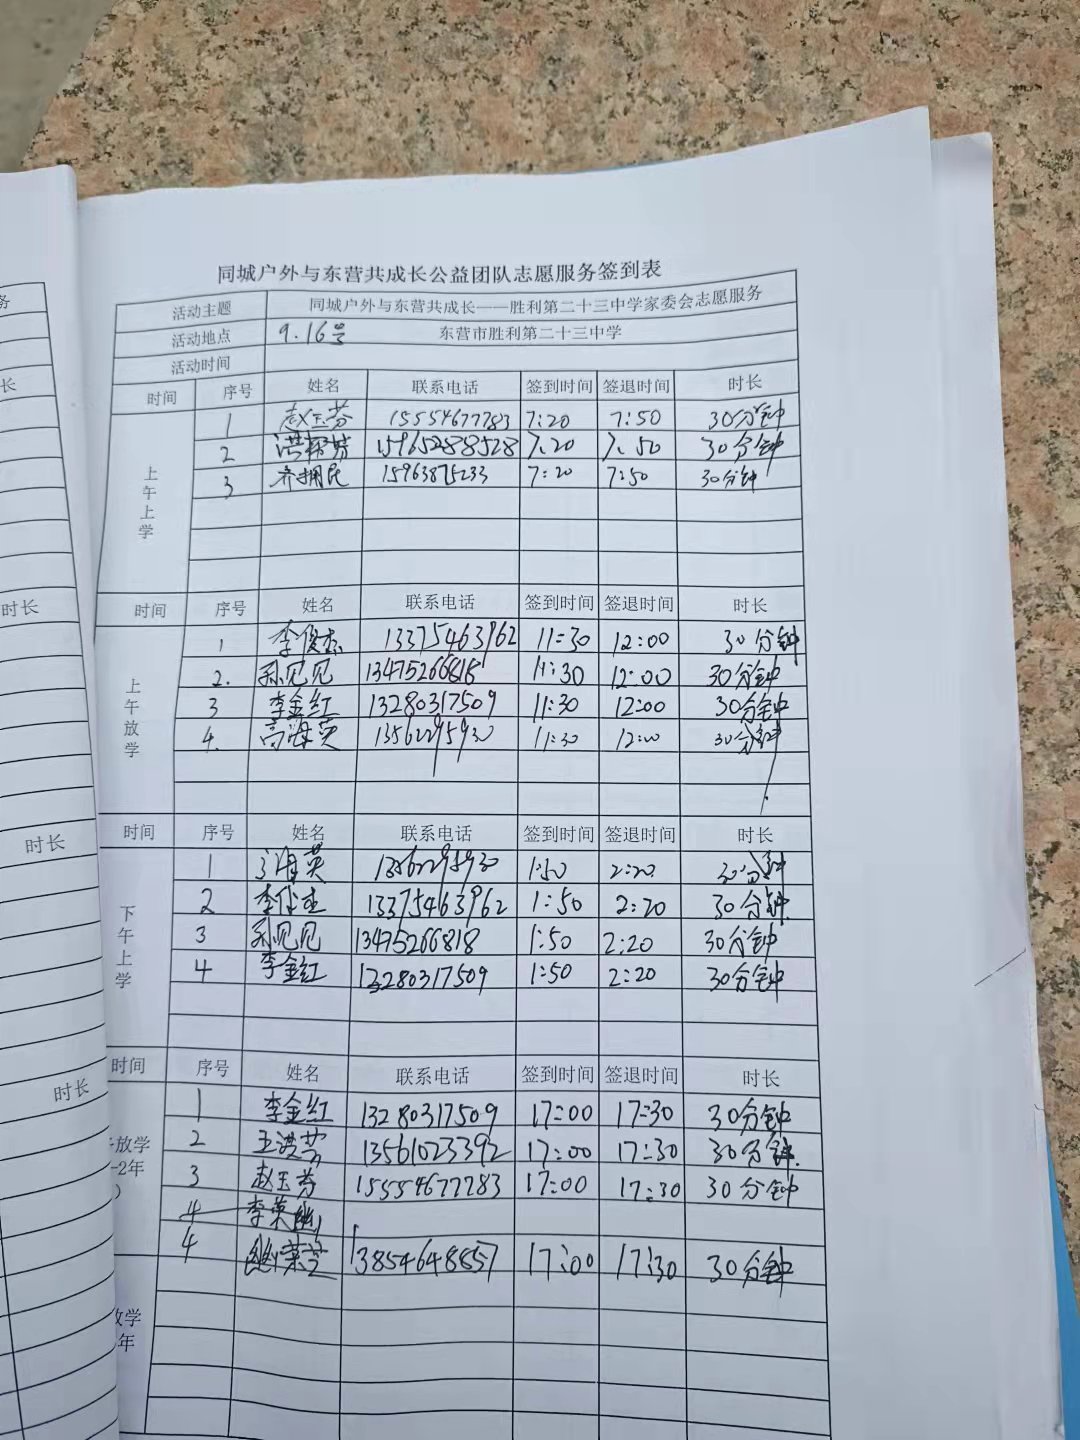 同城户外与东营共成长公益团队志愿服务签到表
活动主题 同城户外与东营共成长——胜利第二十三中学家委会志愿服务
活动地点 9.16号 东营市胜利第二十三中学
活动时间
时间 序号 姓名 联系电话 签到时间 签退时间 时长
上午上学
1 赵玉芬 15554677783 7:20 7:50 30分钟
2 15965288528 7:20 7:50 30分钟
3 齐拥民 15963875233 7:20 7:50 30分钟
时间 序号 姓名 联系电话 签到时间 签退时间 时长
上午放学
1 李俊杰 13375463962 11:30 12:00 30分钟
2. 孙见见 13475266818 11:30 12:00 30分钟
3 李金红 13280317509 11:30 12:00 30分钟
4. 高海英 13562295930 11:30 12:00 30分钟
时间 序号 姓名 联系电话 签到时间 签退时间 时长
下午上学
1 海英 13562295930 1:50 2:20 30分钟
2 李 13375463962 1:50 2:20 30分钟
3 孙见见 13475266818 1:50 2:20 30分钟
4 李金红 13280317509 1:50 2:20 30分钟
时间 序号 姓名 联系电话 签到时间 签退时间 时长
放学
-2年
)
1 李金红 13280317509 17:00 17:30 30分钟
2 王洪芳 13561023392 17:00 17:30 30分钟
3 赵玉芬 15554677783 17:00 17:30 30分钟
4 李荣
4 荣兰 13854648857 17:00 17:30 30分钟
放学
年
务
长
时长
时长
时长